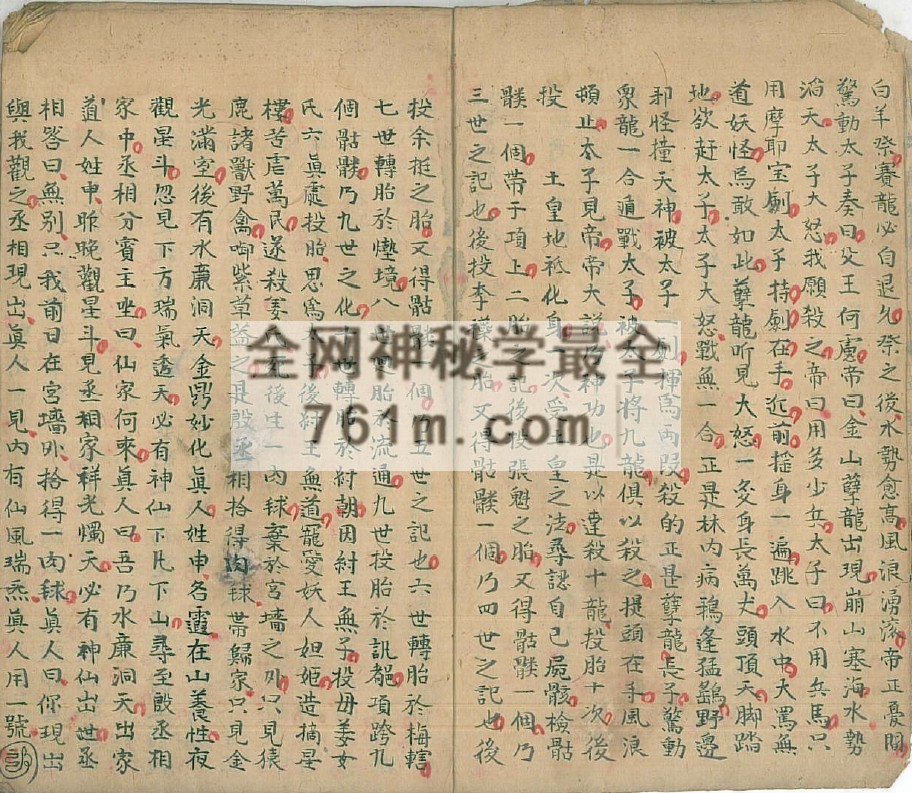 白羊祭賽龍必自退久祭之後水勢愈高風浪湧滾帝正憂悶
驚動太子奏曰父王何慮帝曰金山孽龍出現崩山塞海水勢
滔天太子大怒我願殺之帝曰用多少兵太子曰不用兵馬只
用摩耶宝劍太子持劍在手近前搖身一遍跳入水中大罵無
道妖怪烏敢如此孽龍听見大怒一变身長萬丈頭頂天脚踏
地欲赶太子太子大怒戰無一合正是林內病鴉逢猛鷂野邊
邪怪撞天神被太子一劍揮爲兩段殺的正是孽龍長子驚動
衆龍一合通戰太子被太子將九龍俱以殺之提頭在手風浪
頓止太子見帝帝大説乃神功也是以連殺十龍投胎十次後
投 土皇地祇化身一次受玉皇之法尋認自己屍骸檢骷
髅一個帶于項上二胎之記後投張魁之胎又得骷髅一個乃
三世之記也後投李 胎又得骷髅一個乃四世之記也後
投余挺之胎又得骷髅一個乃五世之記也六世轉胎於梅轄
七世轉胎於㷸境八世男胎於流通九世投胎於訊都項跨九
個骷髅乃九世之化十世轉胎於紂朝因紂王無子投母姜女
氏六眞處投胎思爲 子後紂王無道寵愛妖人妲姬造摘星
樓苦虐萬民遂殺姜 後生一肉球棄於宮墻之外只見猿
鹿諸獸野禽啣紫草益之是殷丞相拾得肉球帶歸家只見金
光滿室後有水廉洞天金鼎妙化眞人姓申名霞在山養性夜
觀星斗忽見下方瑞氣透天必有神仙下凡下山尋至殷丞相
家中丞相分賓主坐曰仙家何來眞人曰吾乃水廉洞天出家
道人姓申昨晚觀星斗見丞相家祥光燭天必有神仙出世丞
相答曰無別只我前日在宮墻外拾得一肉球眞人曰你現出
與我觀之丞相現出眞人一見內有仙風瑞炁眞人用一號
全网神秘学最全
761m.com